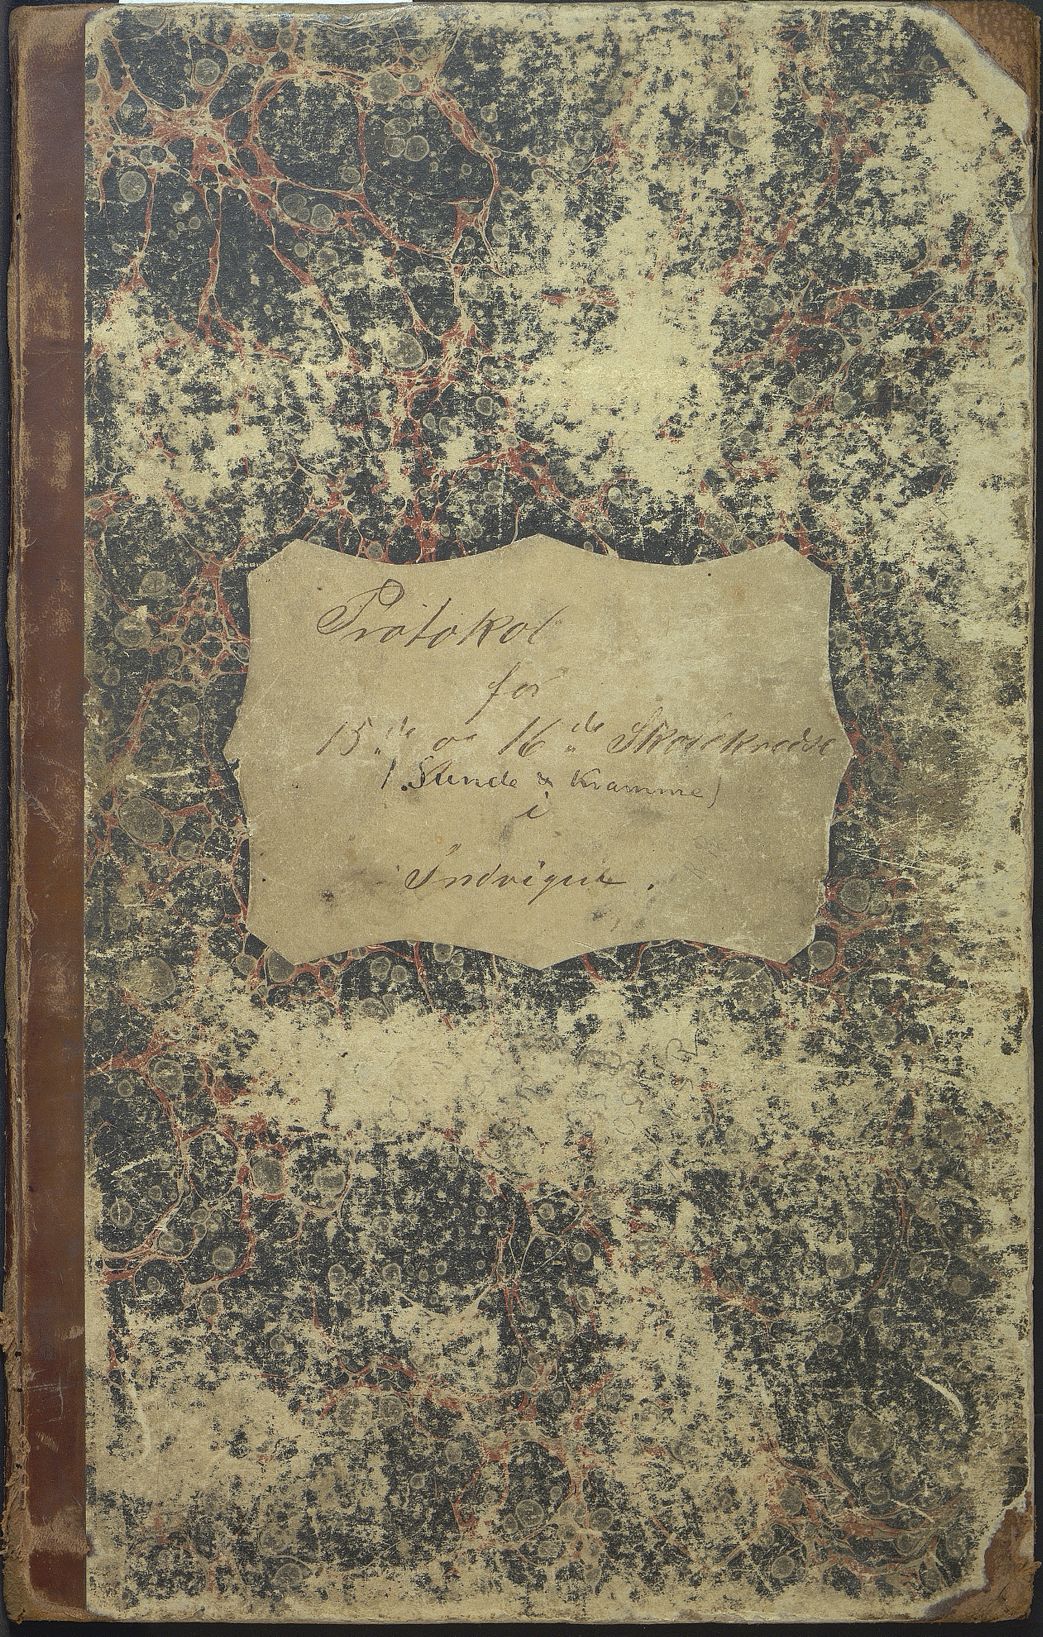 Protokol
for
15de og 16de Skolekredse
(Sunde & Kramme)
i
Indvigen.